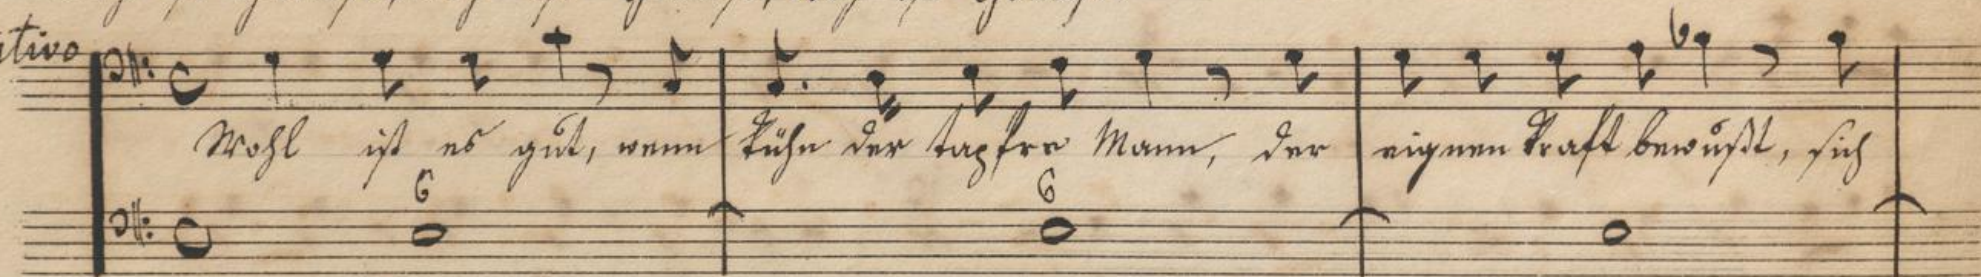 ativo
Wohl ist es gut, wenn kühn der tapfre Mann, der eignen Kraft bewußt, sich
6 6